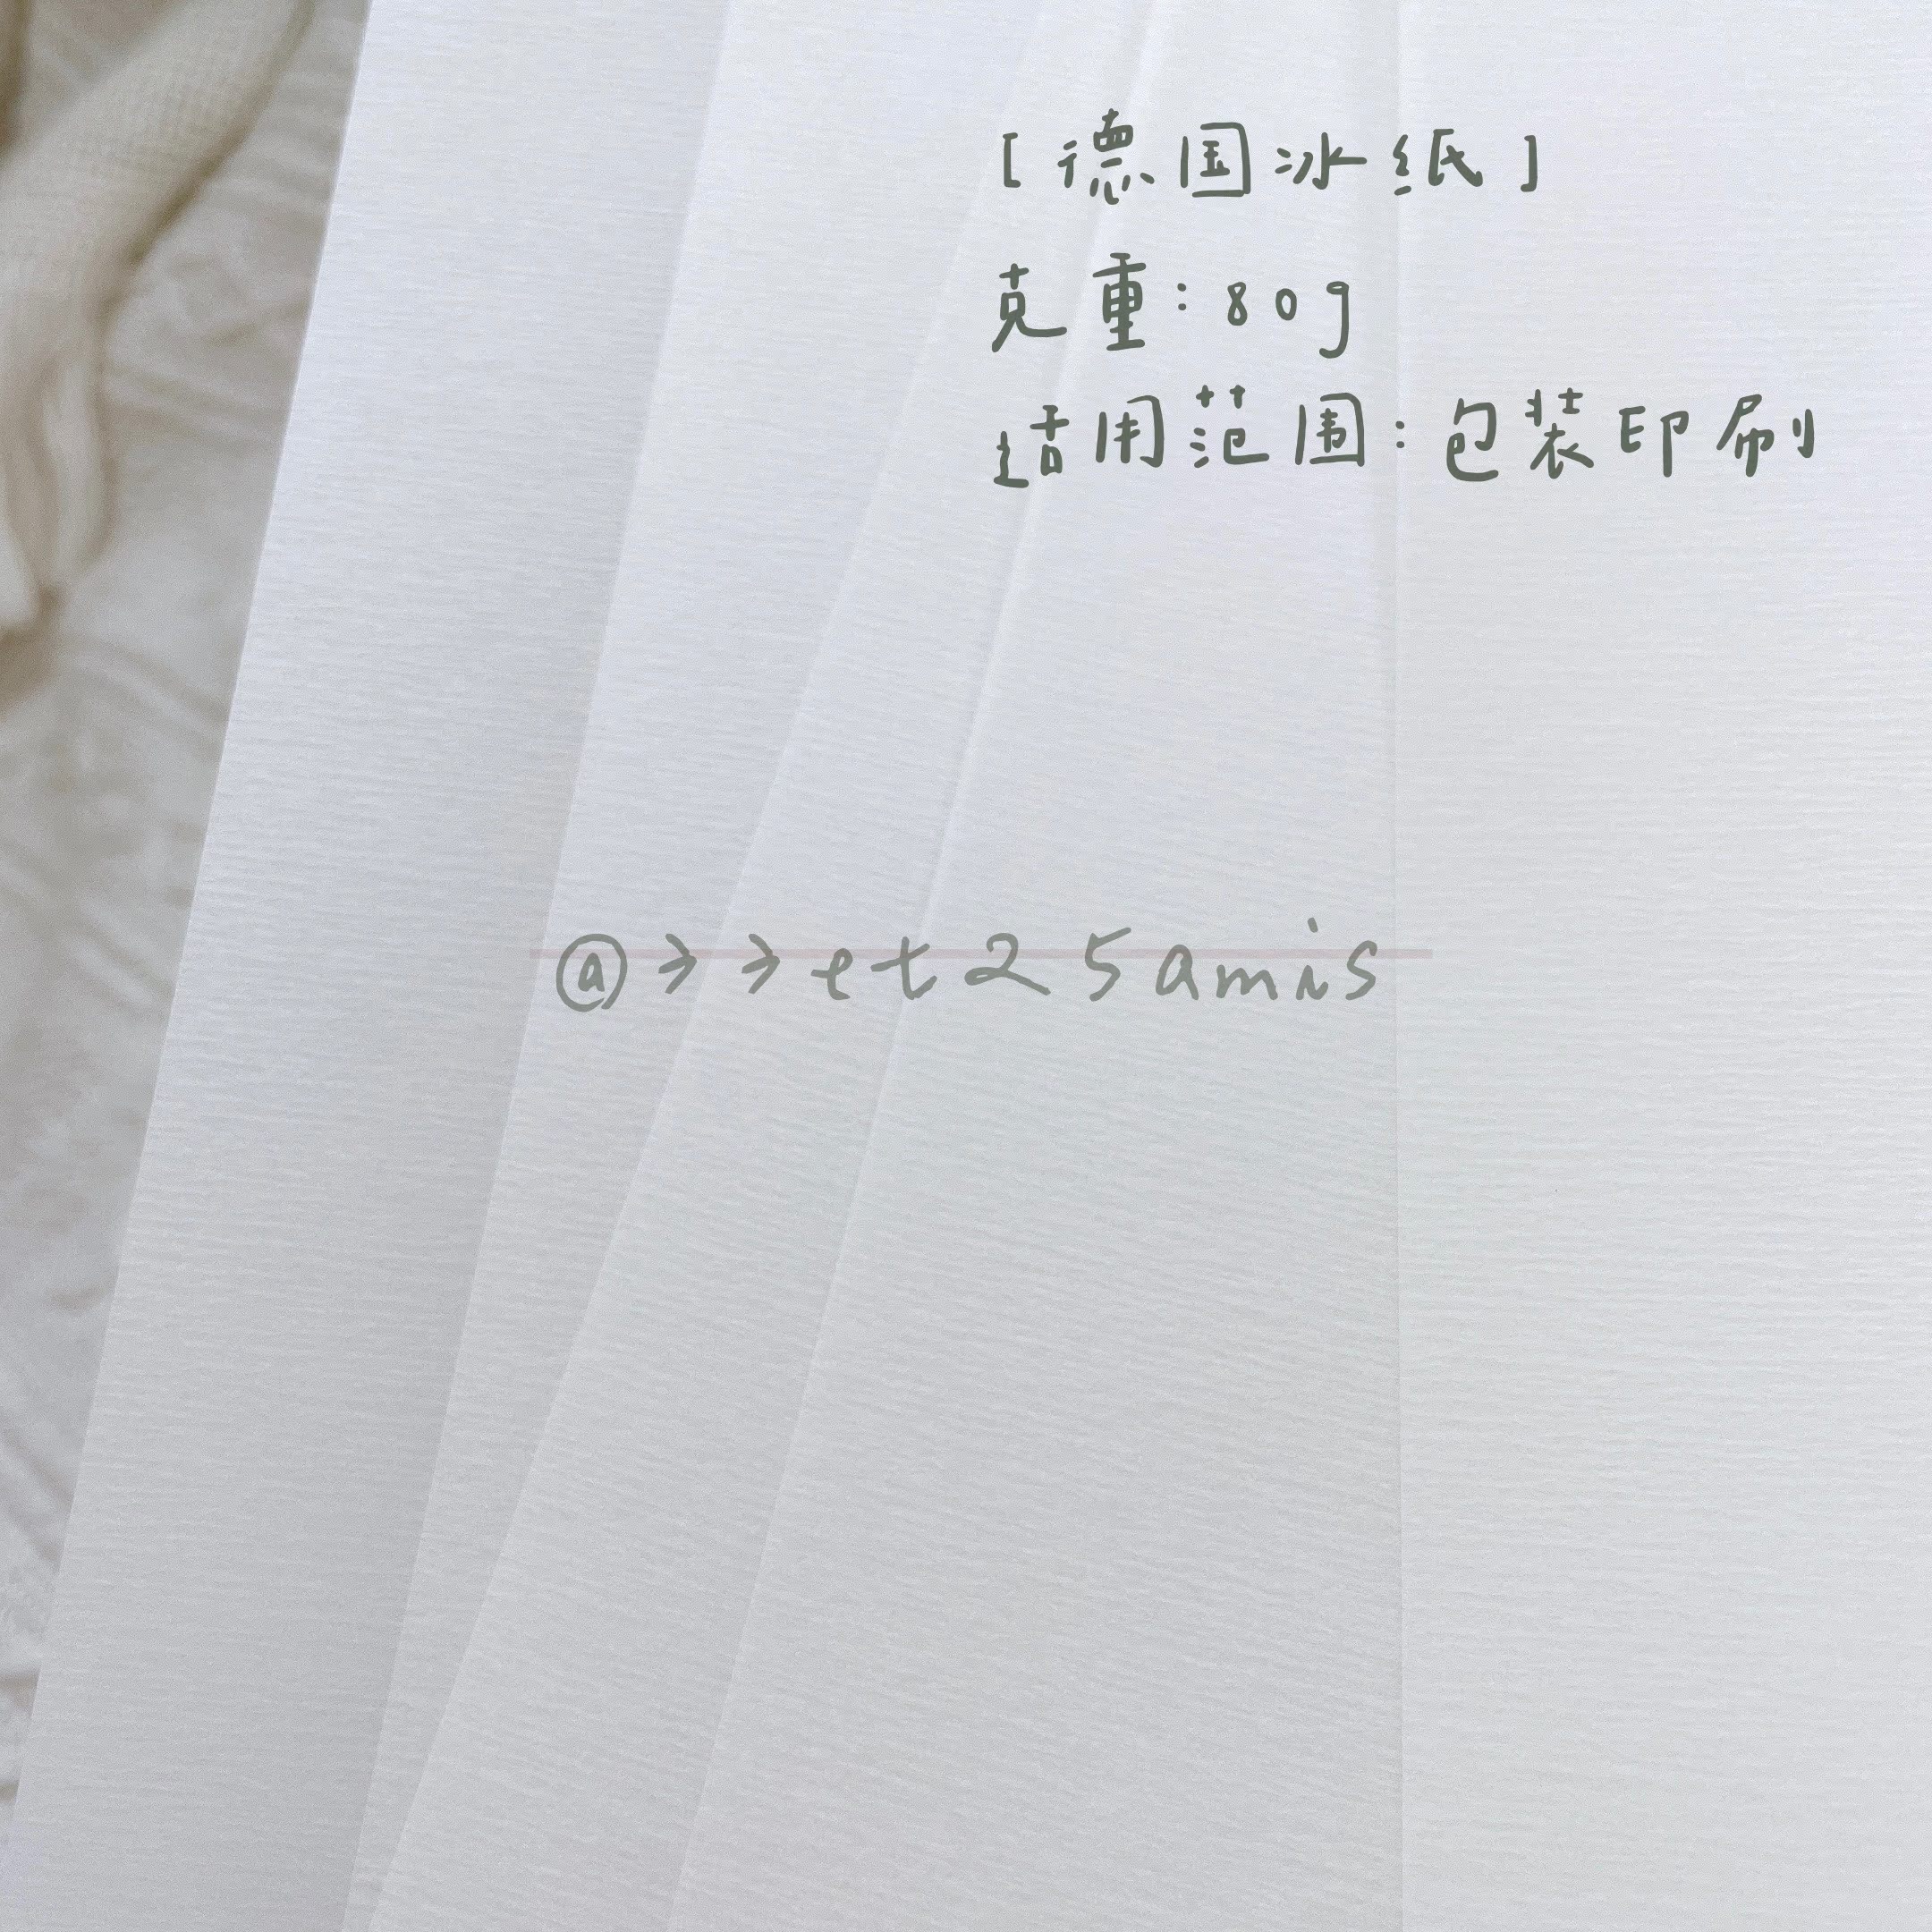 [德国冰纸]
克重:80g
适用范围:包装印刷
@→→et25amis